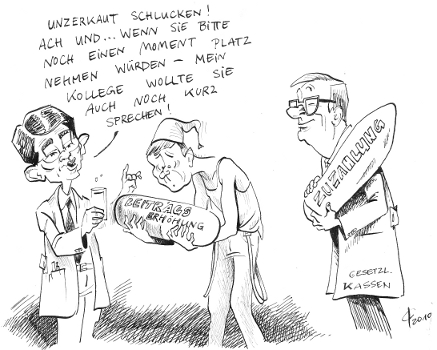 UNZERKAUT SCHLUCKEN!
ACH UND... WENN SIE BITTE
NOCH EINEN MOMENT PLATZ
NEHMEN WÜRDEN – MEIN
KOLLEGE WOLLTE SIE
AUCH NOCH KURZ
SPRECHEN!
BEITRAGS
ERHÖHUNG
ZUZAHLUNG
GESETZL.
KASSEN
2010